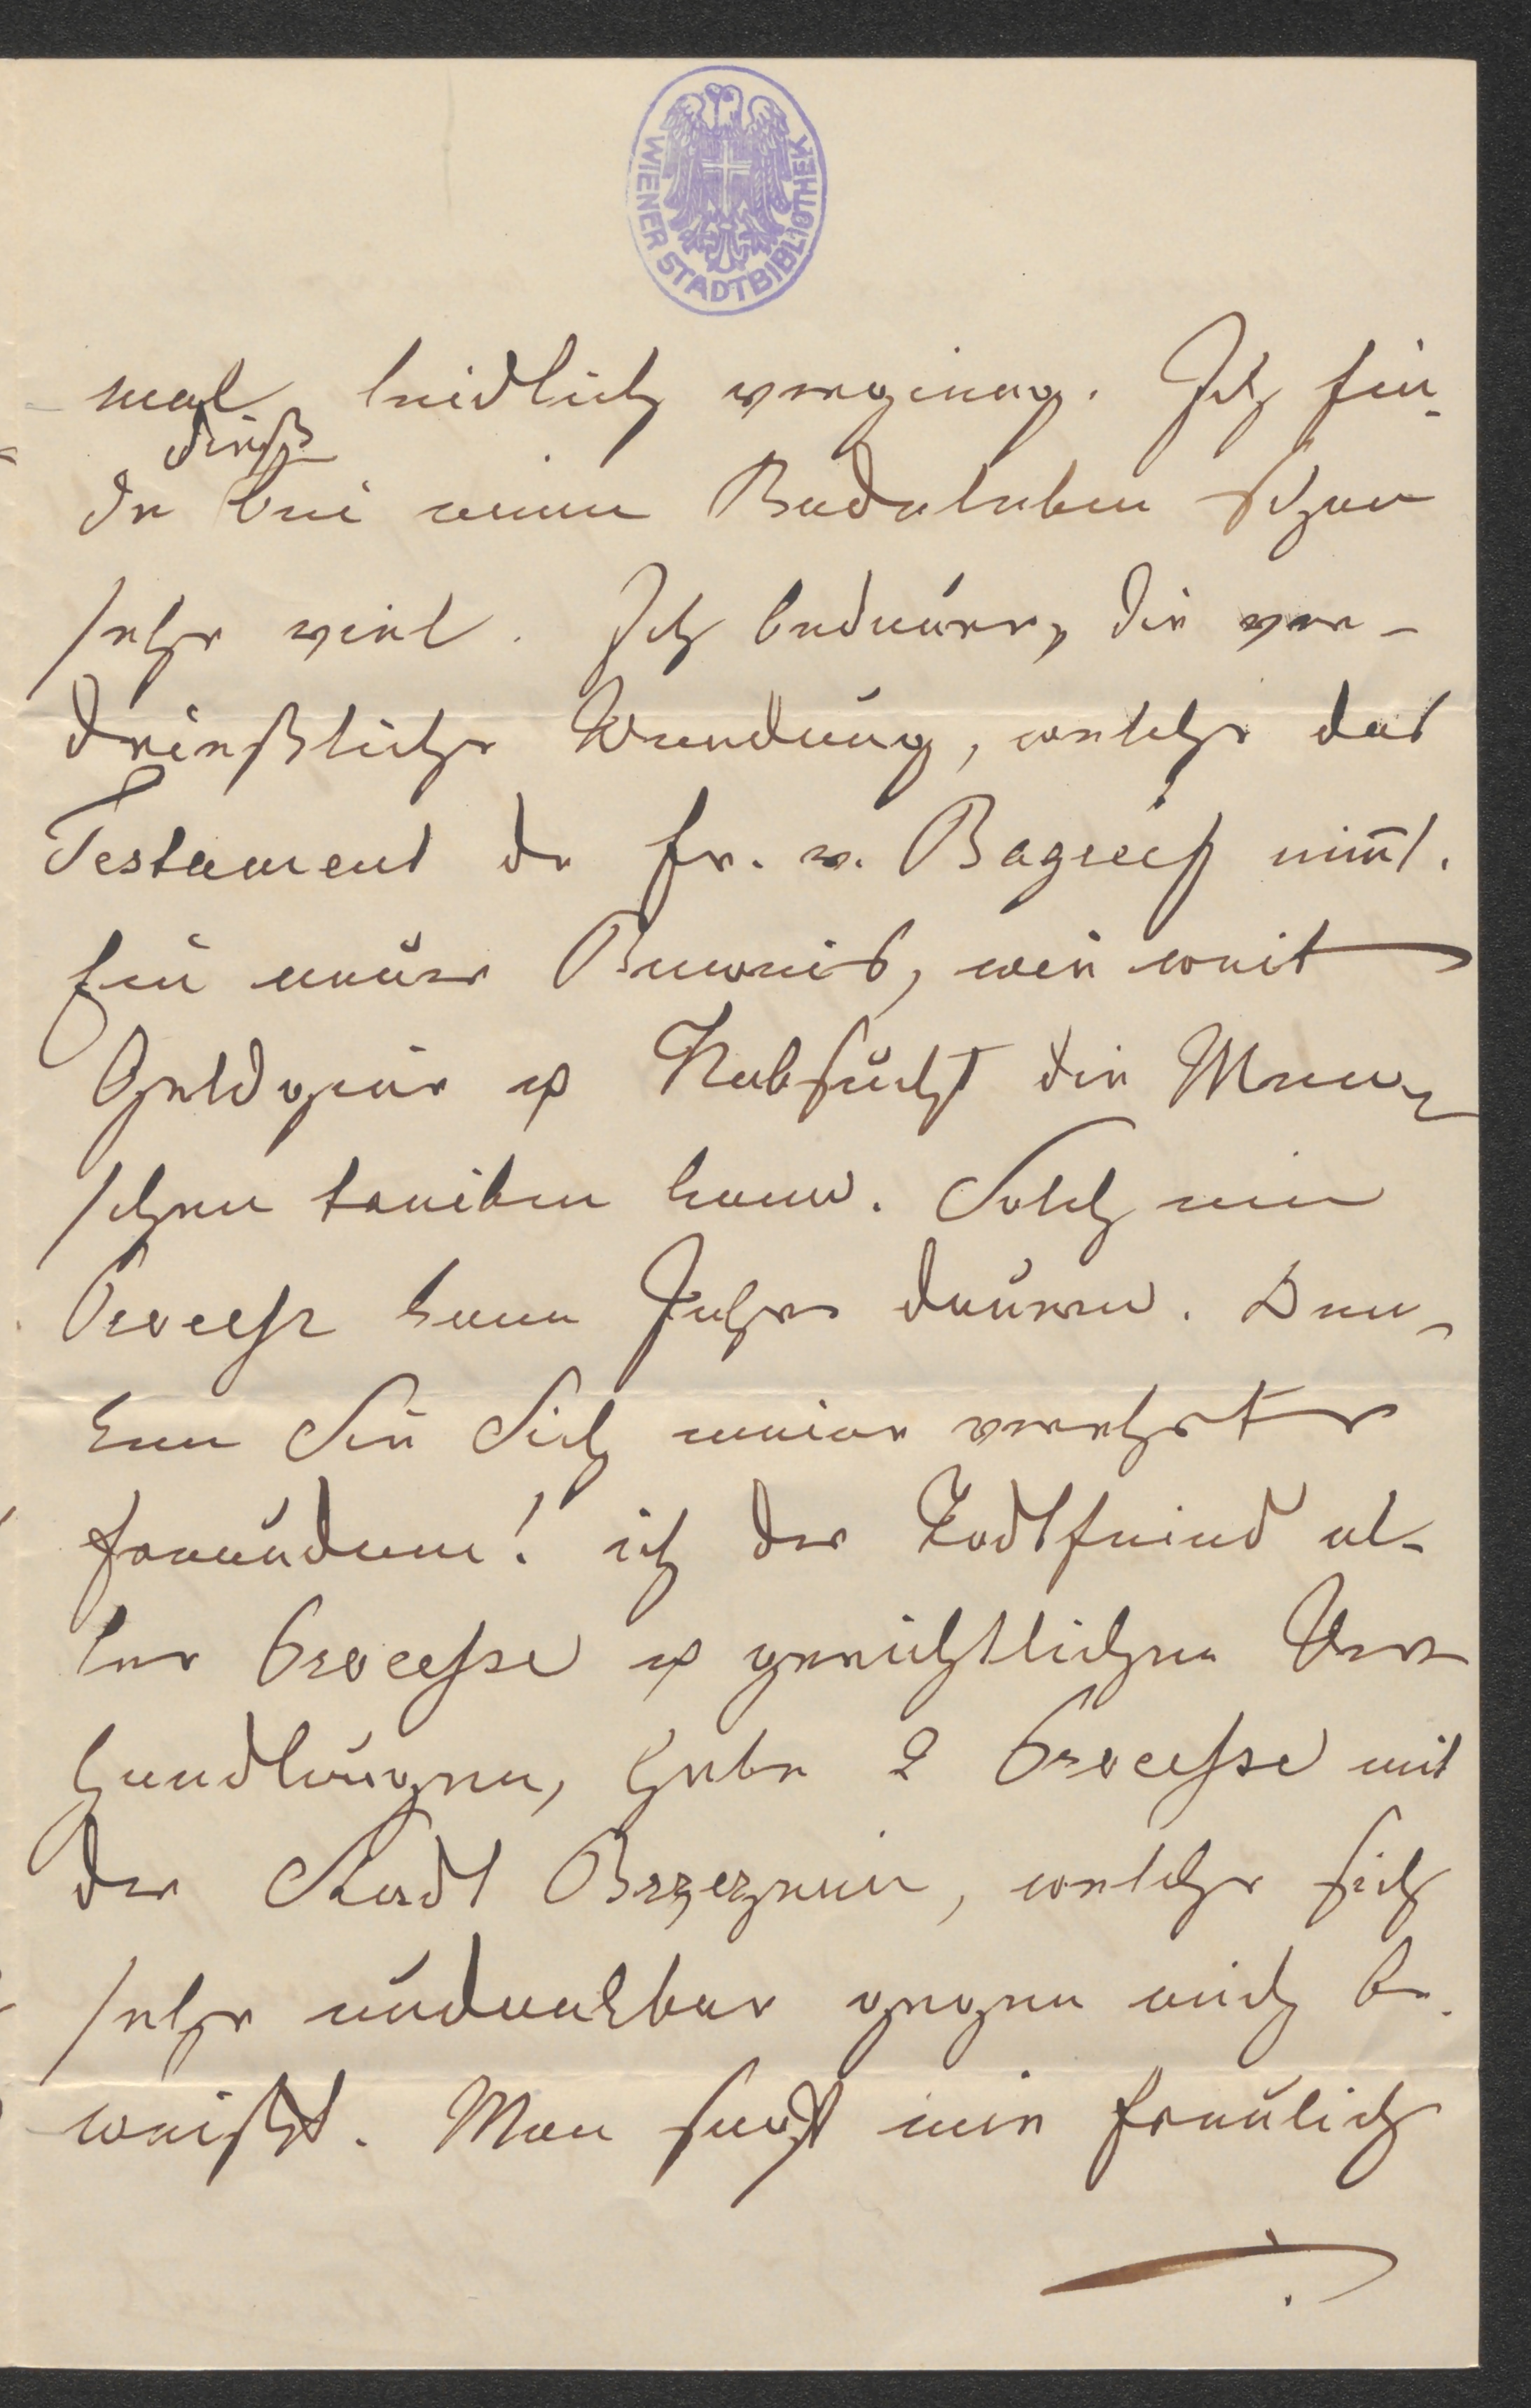 WIENER STADTBIBLIOTHEK
mal leidlich verging. Ich fin-
dieß
de bei einem Badeleben schon
sehr viel. Ich bedaure, die ver-
drießliche Wendung, welche das
Testament der Fr. v. nim̄t.
Ein neuer Beweis, wie weit
Geldgier & Habsucht die Men-
schen treiben kann. Solch ein
Proceß kann Jahre dauern. Den-
ken Sie Sich meine verehrte
Freundinn! ich der Todtfeind al-
ler Processe & gerichtlichen Ver-
handlungen, habe 2 Processe mit
der Stadt Brzezan, welche sich
sehr undankbar gegen mich be-
weißt. Man sagt mir freulich